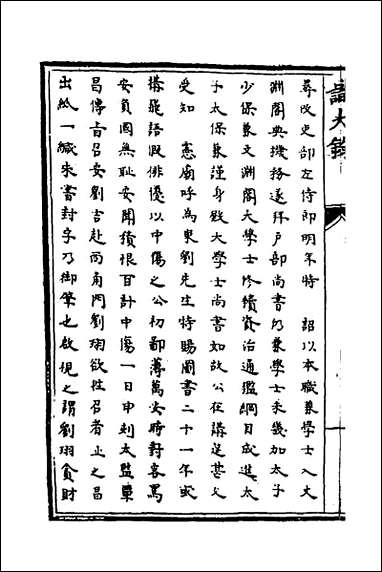 尋改吏部左侍郎明年時　詔以本職兼學士入文
淵閣典機務遂拜戶部尚書仍兼學士未幾加太子
少保兼文淵閣大學士修續資治通鑑綱目成進太
子太保兼謹身殿大學士尚書如故公在講筵甚久
受知　憲廟呼為東劉先生特賜圖書二十一年或
搆飛語假俳優以中傷之公初鄙薄萬安時對客罵
安負國無恥安聞積恨百計中傷一日申刻太監覃
昌傳旨召安劉吉赴西角門劉珝欲往召者止之昌
出紙一緘朱書封字乃御筆也啟視之謂劉珝貪財